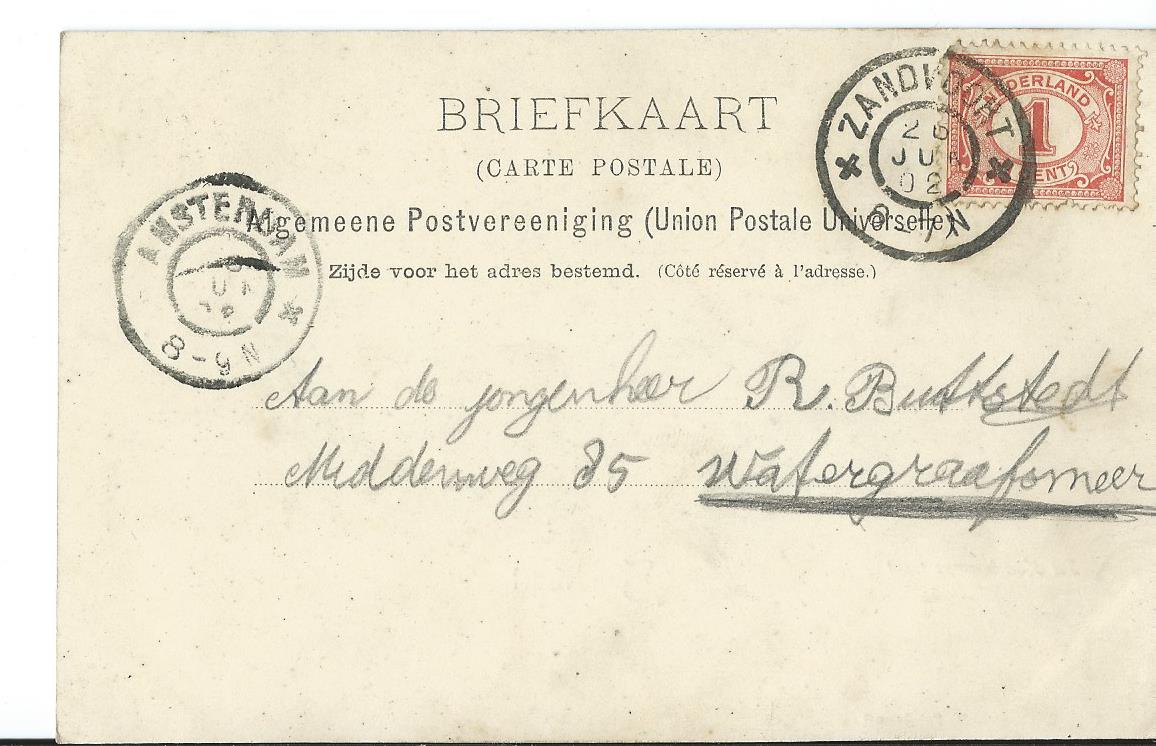 BRIEFKAART
(CARTE POSTALE)
Algemeene Postvereeniging (Union Postale Universelle)
Zijde voor het adres bestemd. (Côté réservé à l'adresse.)
ZANDVOORT
26
JUN
02
8-1N
NEDERLAND
1
CENT
AMSTERDAM
8-5N
Aan de jongenheer R. Buttstedt
Middenweg 85 Watergraafsmeer